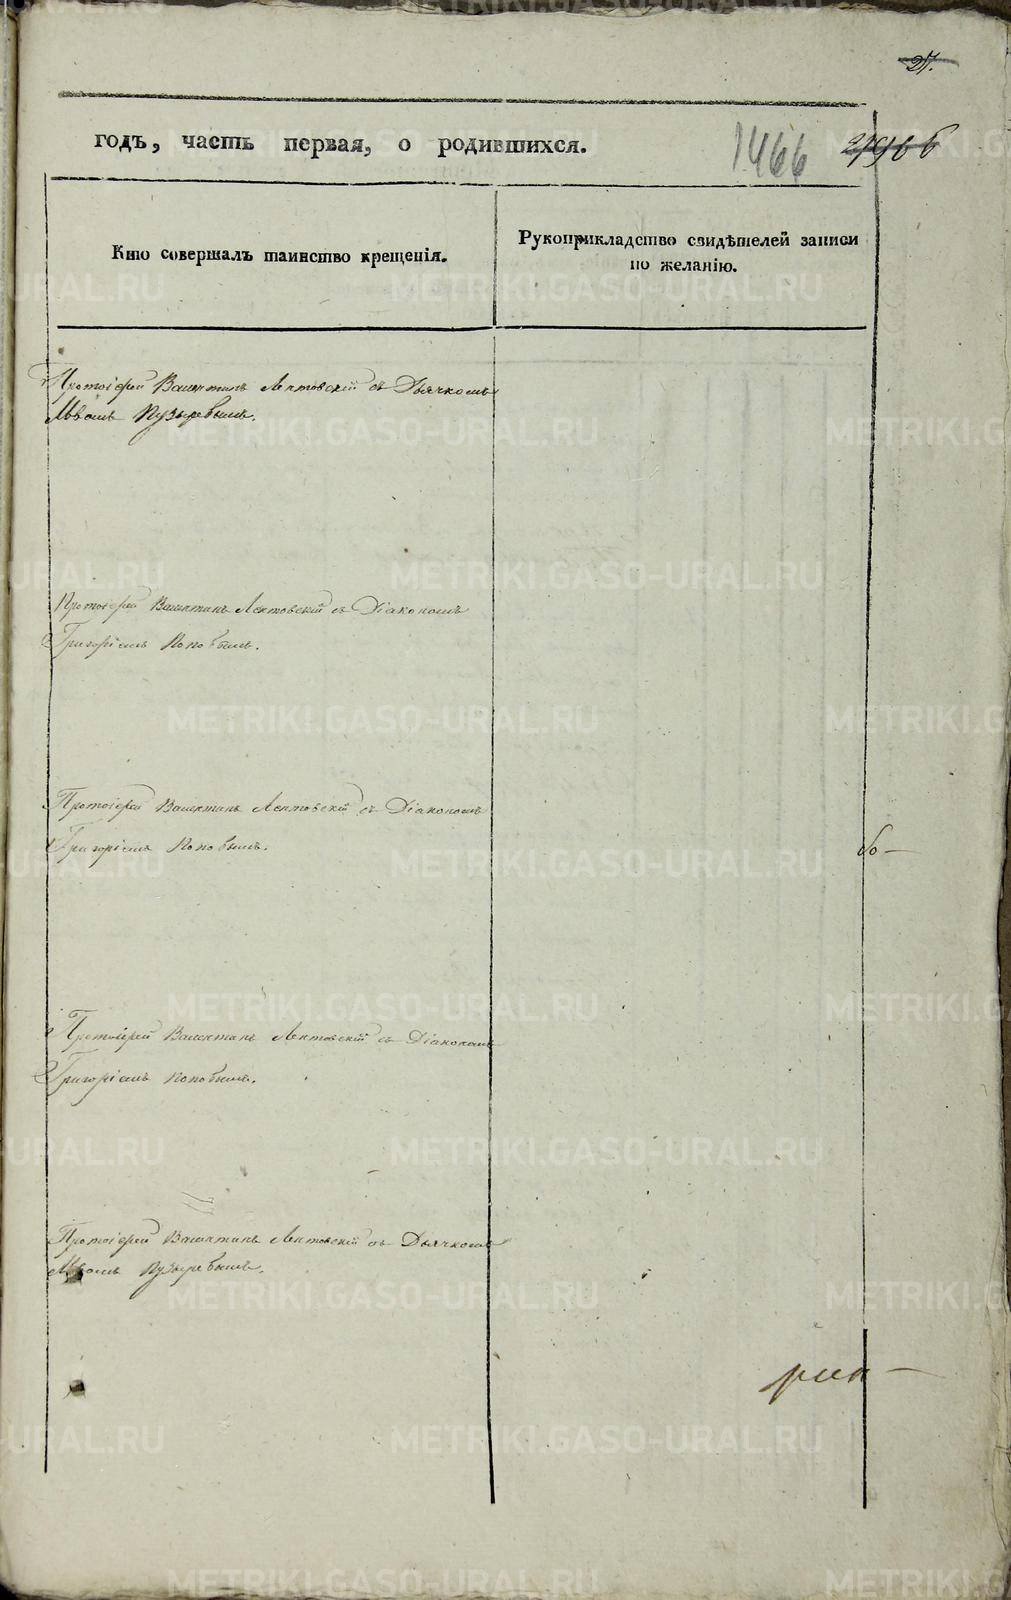 27.
годъ, часть первая, о родившихся.
1466
Кто совершалъ таинство крещенія.
Рукоприкладство свидѣтелей записи
по желанію.
Протоіерей Валентинъ Лектовскій съ Дьячкомъ
Львомъ Пузыревымъ.
Протоіерей Валентинъ Лектовскій съ Діакономъ
Григоріемъ Поповымъ.
Протоіерей Валентинъ Лектовскій съ Діакономъ
Григоріемъ Поповымъ.
бо—
Протоіерей Валентинъ Лектовскій съ Діакономъ
Григоріемъ Поповымъ.
Протоіерей Валентинъ Лектовскій съ Дьячкомъ
Львомъ Пузыревымъ.
METRIKI.GASO-URAL.RU